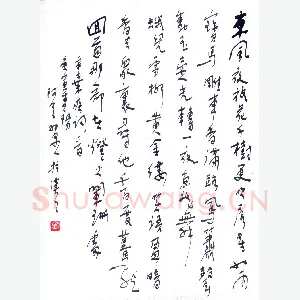 東風夜放花千樹更吹落星如雨
寶馬雕車香滿路鳳簫聲
動玉壺光轉一夜魚龍舞
蛾兒雪柳黃金縷笑語盈盈暗
香去衆裏尋他千百度驀然
回首那人卻在燈火闌珊處
辛棄疾詞一首
庚寅
Shufawang.CN